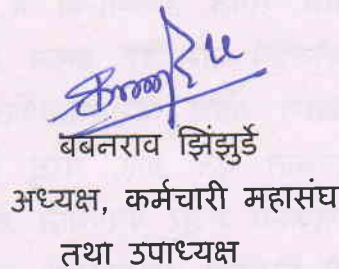 बबनराव झिंझुर्डे
अध्यक्ष, कर्मचारी महासंघ
तथा उपाध्यक्ष